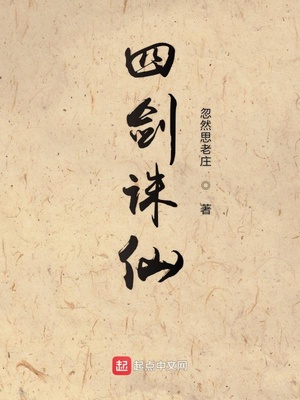 四剑诛仙
忽然思老庄
著
起 起点中文网